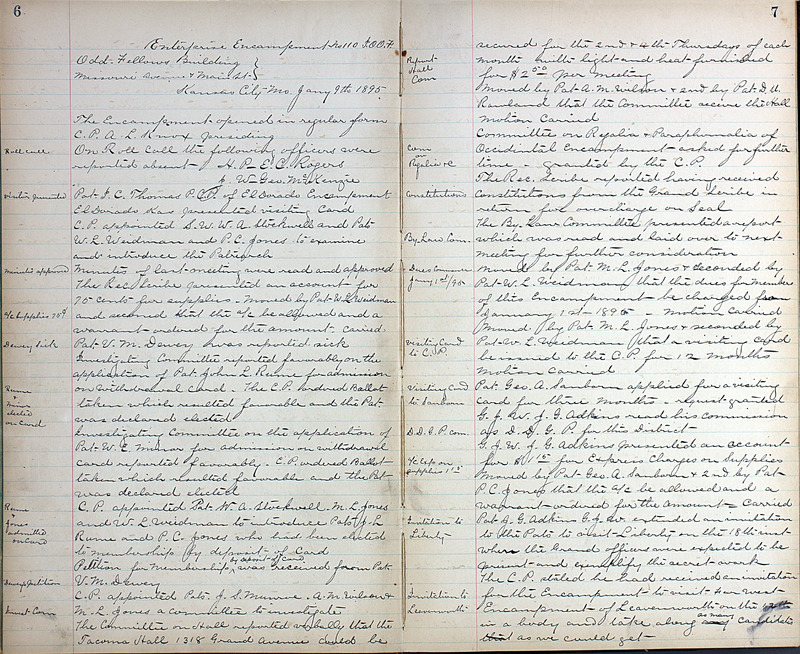 6
Enterprise Encampment No 110 I.O.O.F.
Odd Fellows Building
Missouri Avenue & Main St.
Kansas City Mo. Jany 9th 1895
The Encampment opened in regular form
C.P. A. L. Knox presiding
Roll call
On Roll Call the following officers were
reported absent H.P. C. C. Rogers
J. W. Geo. McKenzie
Visitor presented
Pat. I. C. Thomas P.C.P. of ElDorado Encampment
ElDorado Kas presented visiting Card
C.P. appointed S.W. W. A. Stockwell and Pats
W. L. Weidman and P. C. Jones to examine
and introduce the Patriarch
Minutes approved
Minutes of last meeting were read and approved
The Rec. Scribe presented an account for
70 cents for supplies. Moved by Pat. W. L. Weidman
a/c Supplies 70¢
and second that the a/c be allowed and a
warrant ordered for the amount. Caried.
Dewey Sick
Pat. V. M. Dewey was reported sick
Investigating Committee reported favorably on the
application of Pat. John L. Rume for admission
Rume
&
Minor
elected
on Card
on withdrawal Card. The C.P. ordered Ballot
taken which resulted favorable and the Pat.
was declared elected
Investigating Committee on the application of
Pat. W. E. Minor for admission on withdrawal
card reported favorably. C.P. ordered Ballot
taken which resulted favorable and the Pat
was declared elected
Rume
&
Jones
admitted
on Card
C.P. appointed Pat. W. A. Stockwell, M. L. Jones
and W. L. Weidman to introduce Pats J. L.
Rume and P. C. Jones who had been elected
to membership by deposit of Card
by deposit of Card
Petition for Membership was received from Pat.
Deweys Petition
V. M. Dewey
C.P. appointed Pats. J. S. Munroe, A. M. Wilson &
Invest Com
M. L. Jones a committee to investigate
The Committee on Hall reported verbally that the
Tacoma Hall 1318 Grand Avenue could be
7
secured for the 2nd & 4th Thursdays of each
Report
Hall
Com
month with light and heat furnished
for $2.50 per meeting
Moved by Pat. A. M. Wilson & 2nd by Pat. D. U.
that the Committee secure the Hall
Motion Carried
Com
on
Regalia &c
Committee on Regalia & Paraphonalia of
Occidental Encampment asked for further
time - granted by the C.P.
The Rec. Scribe reported having received
Constitutions
Constitutions from the Grand Scribe in
return for overcharge on Seal
By Laws Com.
The By. Laws Committee presented a report
which was read and laid over to next
meeting for further consideration
Dues Commence
Jany 1st/95
Moved by Pat. M. L. Jones & seconded by
Pat. W. L. Weidman that the dues for members
of this Encampment be charged from
January 1st 1895. Motion Carried
Visiting Card
to C.P.
Moved by Pat. M. L. Jones & seconded by
Pat. W. L. Weidman that a visiting card
be issued to the C.P. for 12 Months
Motion Carried
Visiting Card
to Sanborn
Pat. Geo. A. Sanborn applied for a visiting
Card for three Months - request granted
D.D.G.P. com.
G. J. W. J. G. Adkins read his commission
as D. D. G. P. for this District
G. J. W. J. G. Adkins presented an account
a/c Exp on
Supplies 1.15
for $1.15 for Express Charges on Supplies
Moved by Pat. Geo. A. Sanborn & 2nd by Pat
P C. Jones that the a/c be allowed and a
warrant ordered for the amount - Carried
Invitation to
Liberty
Pat J. G. Adkins G.J.W. extended an invitation
to the Pats to visit Liberty on the 18th inst
when the Grand officers were expected to be
present and exemplify the secret work
The C.P. stated he had received an invitation
Invitation to
Leavenworth
for the Encampment to visit Far West
Encampment of Leavenworth on the
as many
in a body and take along any candidates
that as we could get